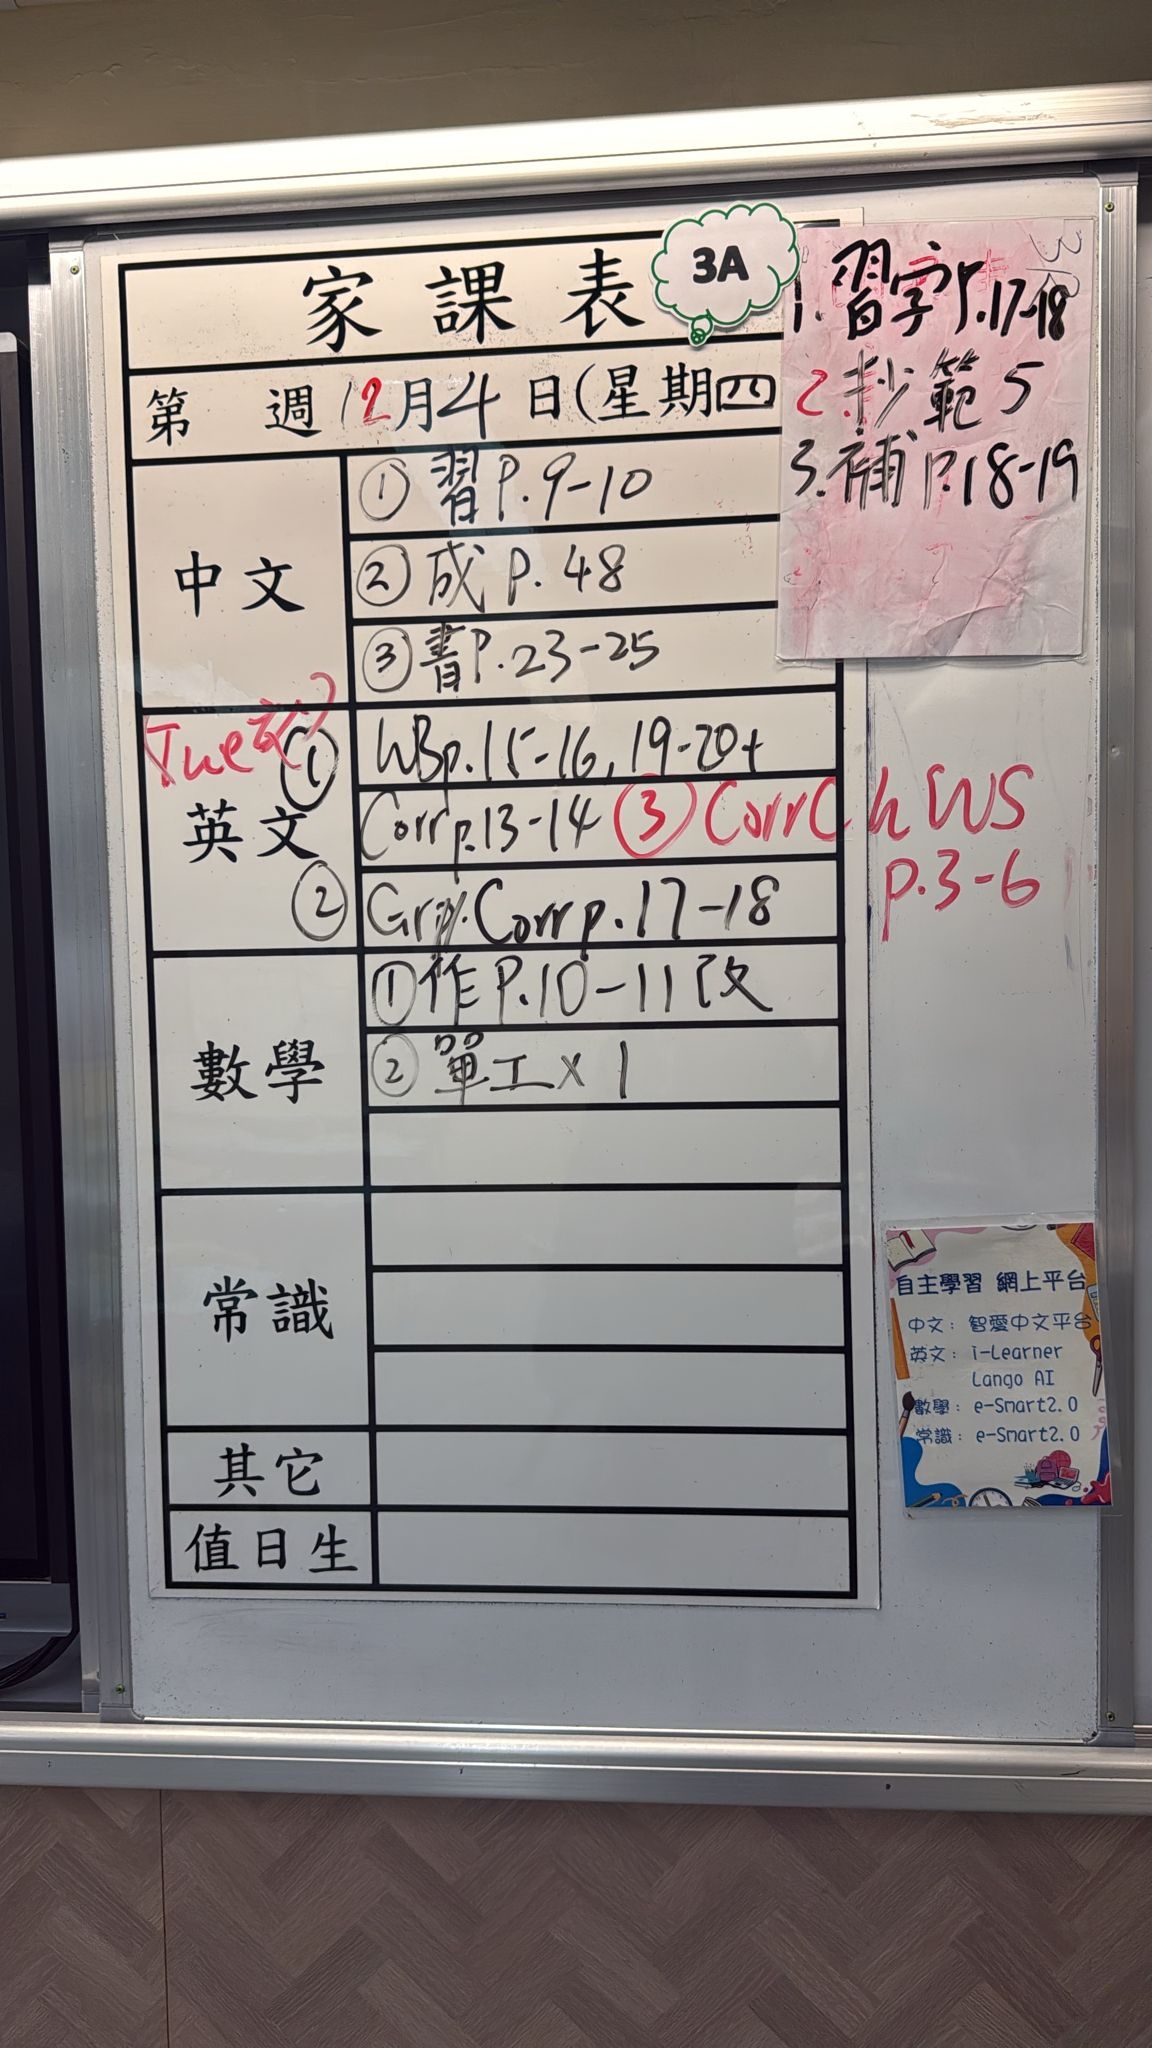 家課表
3A
第 週 12月4日(星期四
中文
① 習P.9-10
② 成P.48
③ 書P.23-25
英文
Tue
① WBp.15-16, 19-20+
Corrp.13-14 ③ Corr Ch WS
p.3-6
② Gr Corrp.17-18
數學
① 作P.10-11改
② 單工x1
常識
其它
值日生
3A
1. 習字P.17-18
2. 抄範5
3. 補P.18-19
自主學習 網上平台
中文: 智愛中文平台
英文: i-Learner
Lango AI
數學: e-Smart2.0
常識: e-Smart2.0